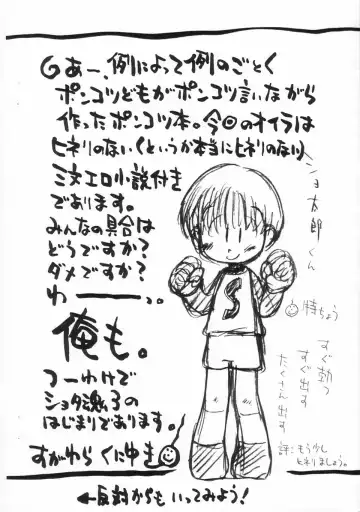 あー、例によって例のごとく
ポンコツどもがポンコツ言いながら
作ったポンコツ本。今回のオイラは
ヒネリのない(というか本当にヒネリのない)
三文エロ小説付き
であります。
みんなの具合は
どうですか?
ダメですか?
わーーー。
俺も。
つーわけで
ショタ激の
はじまりであります。
すがわら くにゆき
←反対からもいってみよう!
ショタ郎くん
S
特ちょう
すぐ勃つ
すぐ出す
たくさん出す
評:もう少し
ヒネリましょう。